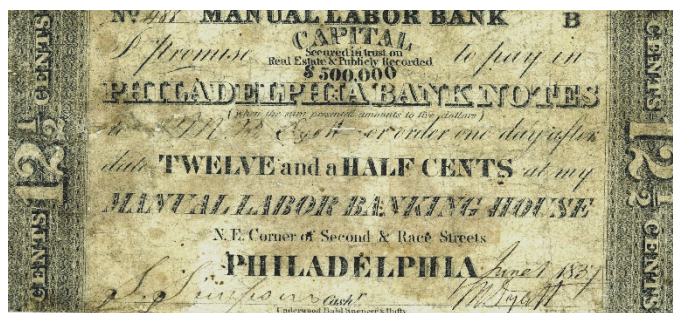 No 481 MANUAL LABOR BANK B
CAPITAL
Secured in trust on
Real Estate & Publicly Recorded
$ 500,000
I Promise to pay in
PHILADELPHIA BANK NOTES
(when the sum presented amounts to five dollars)
to or order one day after
date TWELVE and a HALF CENTS at my
MANUAL LABOR BANKING HOUSE
N.E. Corner of Second & Race Streets
PHILADELPHIA June 1 1837
Cashr
Underwood Bald Spencer & Hufty
CENTS 12½ CENTS
CENTS 12½ CENTS